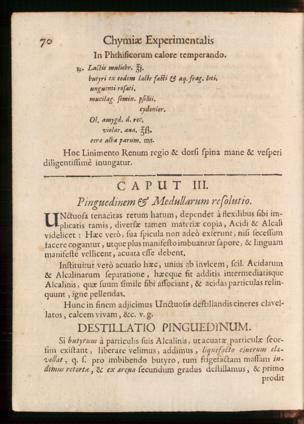 70 Chymiæ Experimentalis
In Phthisicorum calore temperando.
℞. Lactis muliebr. ℥j.
butyri ex eodem lacte facti & aq. frag. loti,
unguenti rosati,
mucilag. semin. psillii,
cydonior.
Ol. amygd. d. rec.
violar. ana. ℥ß.
ceræ albæ parum. m.
Hoc Linimento Renum regio & dorsi spina mane & vesperi
diligentissimè inungatur.
CAPUT III.
Pinguedinem & Medullarum resolutio.
UNctuosa tenacitas rerum harum, dependet à flexibilus sibi im-
plicatis ramis, diversæ tamen materiæ copia, Acidi & Alcali
videlicet : Hæc verò, sua spicula non adeò exserunt, nisi secessum
facere cogantur, utque plus manifesto imbuantur sapore, & linguam
manifestè vellicent, acuata esse debent.
Instituitur verò acuatio hæc, unius ab invicem, scil. Acidarum
& Alcalinarum separatione, hæcque fit additis intermediatisque
Alcalinis, quæ suum simile sibi associant, & acidas particulas relin-
quunt, igne pellendas.
Hunc in finem adjicimus Unctuosis destillandis cineres clavel-
latos, calcem vivam, &c. v. g.
DESTILLATIO PINGUEDINUM.
Si butyrum à particulis suis Alcalinis, ut acuatæ particulæ seor-
sim existant, liberare velimus, addimus, liquefacto cinerum cla-
vellat. q. s. pro imbibendo butyro, tum frigefactam massam in-
dimus retortæ, & ex arena secundum gradus destillamus, & primo
prodit